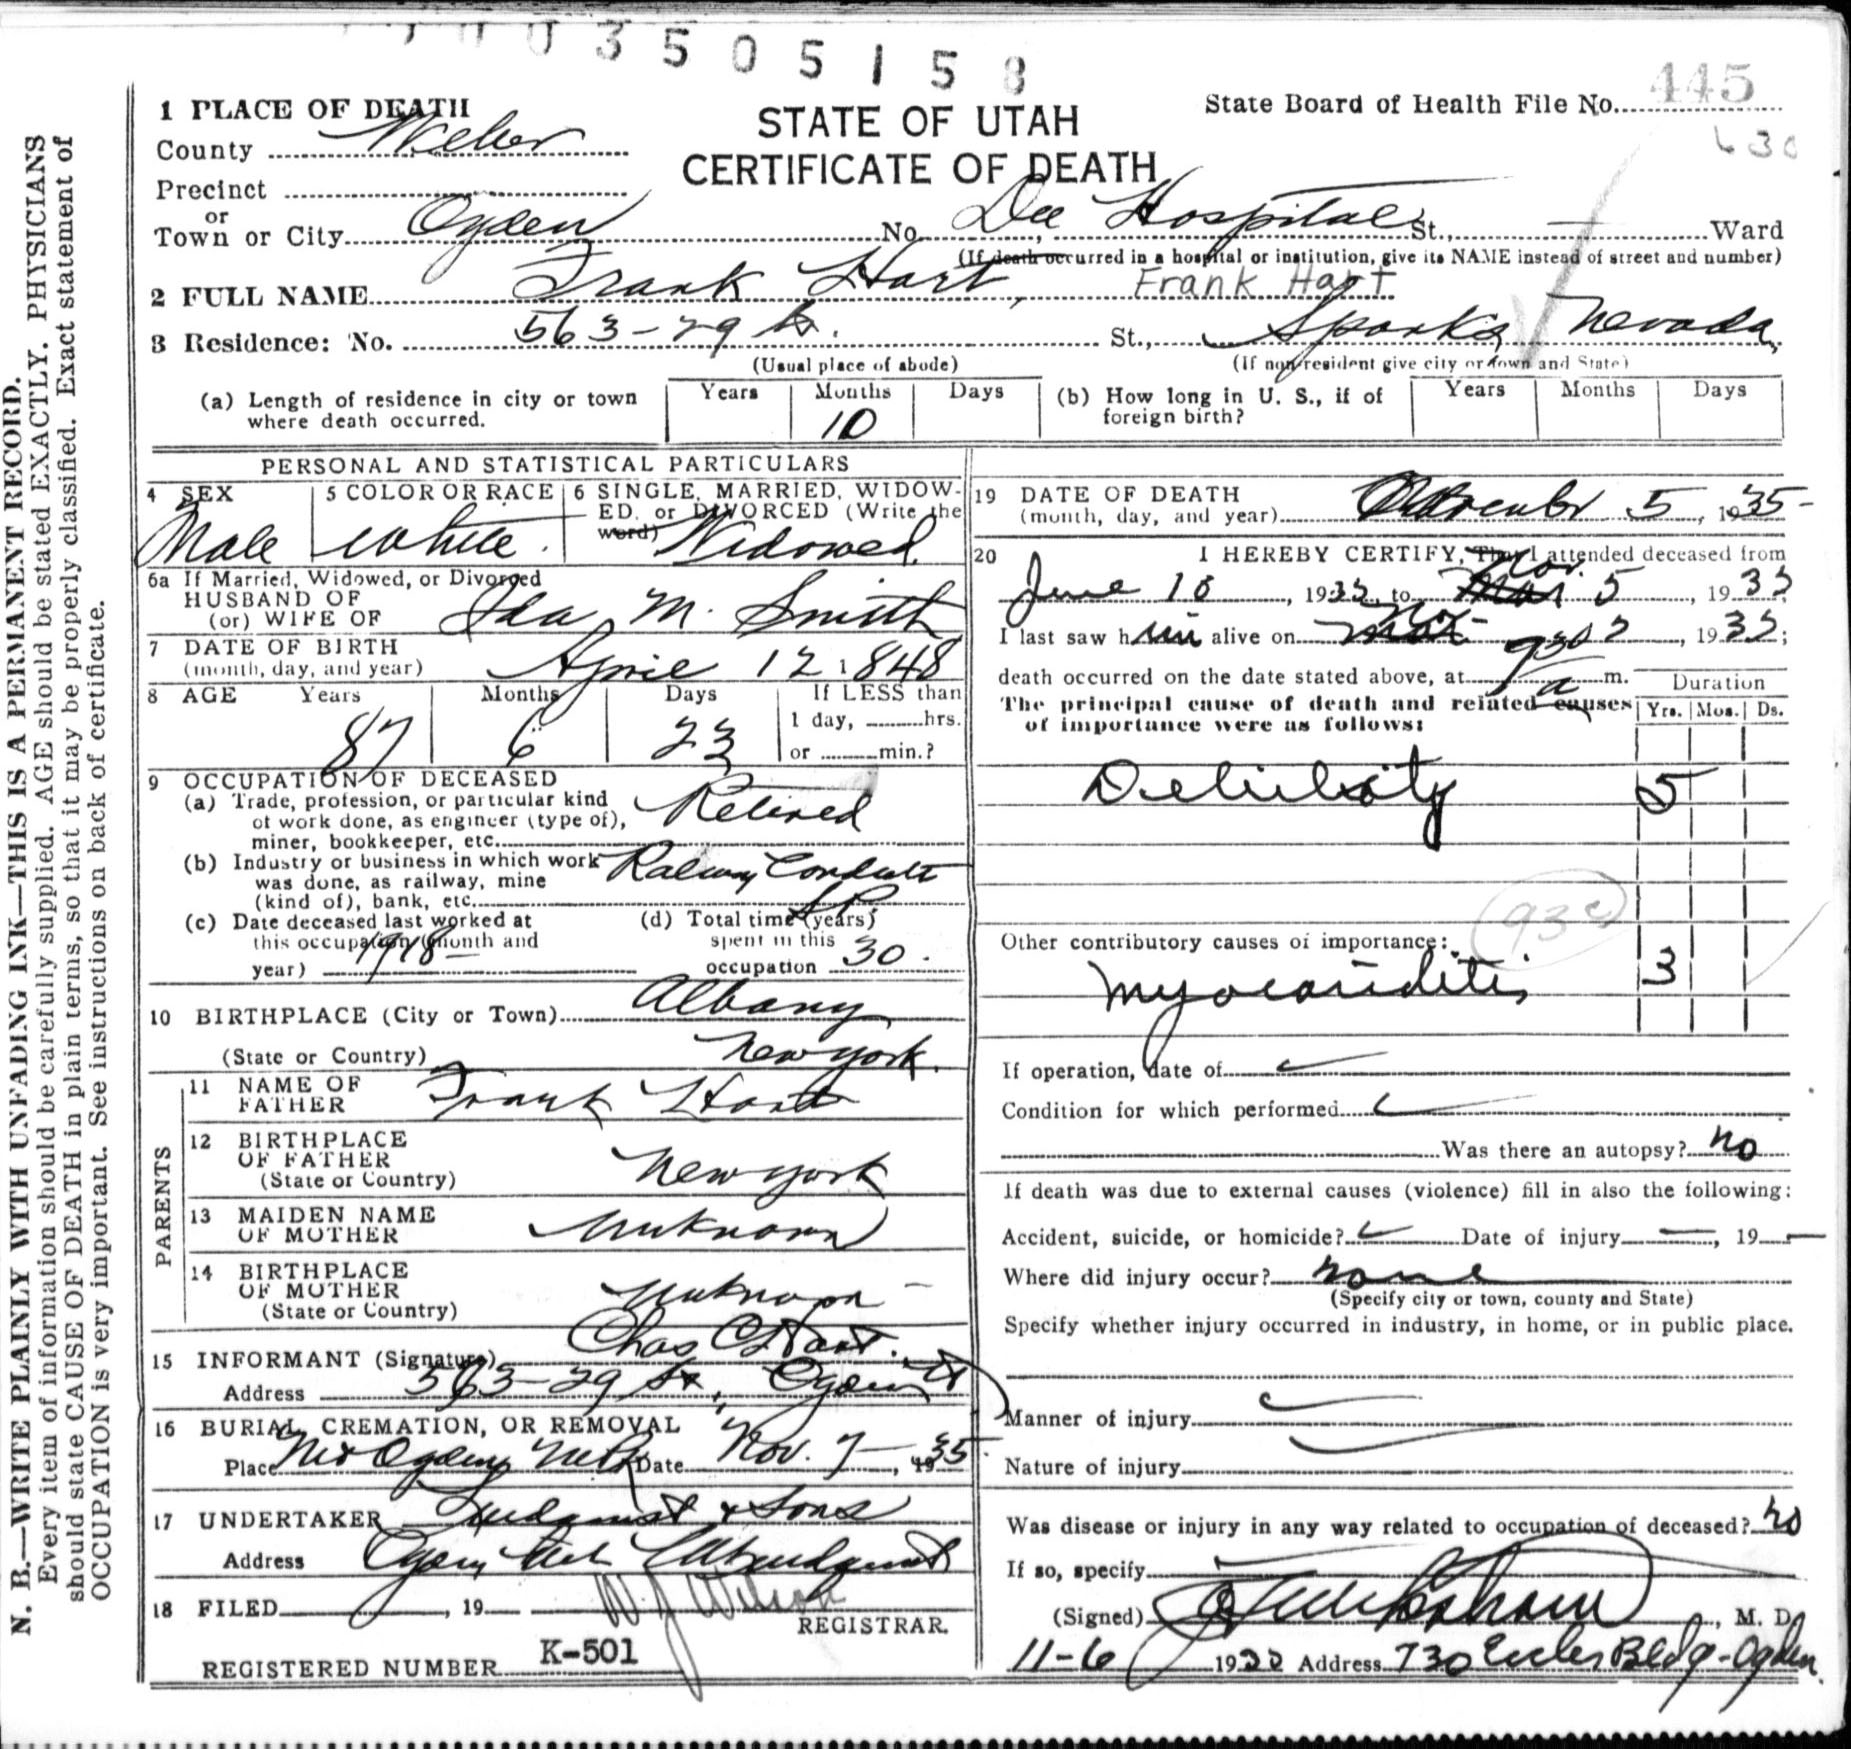 3 5 0 5 1 5 8
1 PLACE OF DEATH
STATE OF UTAH
CERTIFICATE OF DEATH
State Board of Health File No. 445
630
County Weber
Precinct
or
Town or City Ogden No. Dee Hospital St., — Ward
(If death occurred in a hospital or institution, give its NAME instead of street and number)
2 FULL NAME Frank Hart, Frank Hart
3 Residence: No. 563-29 St. St., Sparks, Nevada,
(Usual place of abode) (If non-resident give city or town and State)
(a) Length of residence in city or town where death occurred. Years Months 10 Days
(b) How long in U. S., if of foreign birth? Years Months Days
PERSONAL AND STATISTICAL PARTICULARS
4 SEX Male
5 COLOR OR RACE white.
6 SINGLE, MARRIED, WIDOWED, or DIVORCED (Write the word) Widowed
6a If Married, Widowed, or Divorced
HUSBAND OF
(or) WIFE OF Ida M. Smith
7 DATE OF BIRTH
(month, day, and year) April 12 1848
8 AGE Years 87 Months 6 Days 23 If LESS than
1 day, hrs.
or min.?
9 OCCUPATION OF DECEASED
(a) Trade, profession, or particular kind
of work done, as engineer (type of),
miner, bookkeeper, etc. Retired
(b) Industry or business in which work
was done, as railway, mine
(kind of), bank, etc. Railway Conductor SP
(c) Date deceased last worked at
this occupation (month and
year) 1918
(d) Total time (years)
spent in this
occupation 30.
10 BIRTHPLACE (City or Town) Albany
(State or Country) New York.
PARENTS
11 NAME OF
FATHER Frank Hart
12 BIRTHPLACE
OF FATHER
(State or Country) New York
13 MAIDEN NAME
OF MOTHER Unknown
14 BIRTHPLACE
OF MOTHER
(State or Country) Unknown
15 INFORMANT (Signature) Chas C Hart.
Address 563-29 St., Ogden Ut
16 BURIAL, CREMATION, OR REMOVAL
Place Mt Ogden, Date Nov. 7—, 1935
17 UNDERTAKER Lindquist & Sons
Address Ogden, Utah Lindquist
18 FILED , 19 W J Wilson
REGISTRAR.
REGISTERED NUMBER K-501
19 DATE OF DEATH
(month, day, and year) November 5, 1935-
20 I HEREBY CERTIFY, That I attended deceased from
June 10, 1935, to Nov. 5, 1935
I last saw him alive on Nov 5, 1935;
death occurred on the date stated above, at 930 a m.
The principal cause of death and related causes
of importance were as follows:
Duration
Yrs. Mos. Ds.
Debility 5
93c
Other contributory causes of importance:
Myocarditis 3
If operation, date of
Condition for which performed
Was there an autopsy? no
If death was due to external causes (violence) fill in also the following:
Accident, suicide, or homicide? Date of injury —, 19—
Where did injury occur? none
(Specify city or town, county and State)
Specify whether injury occurred in industry, in home, or in public place.
Manner of injury
Nature of injury
Was disease or injury in any way related to occupation of deceased? no
If so, specify
(Signed) , M. D.
11-6 1935 Address 730 Eccles Bldg-Ogden.
N. B.—WRITE PLAINLY WITH UNFADING INK—THIS IS A PERMANENT RECORD.
Every item of information should be carefully supplied. AGE should be stated EXACTLY. PHYSICIANS
should state CAUSE OF DEATH in plain terms, so that it may be properly classified. Exact statement of
OCCUPATION is very important. See instructions on back of certificate.